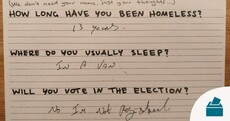 (We don't need your name, just your thoughts...)
HOW LONG HAVE YOU BEEN HOMELESS?
13 years.
WHERE DO YOU USUALLY SLEEP?
IN A VAN
WILL YOU VOTE IN THE ELECTION?
No Im Not Registered